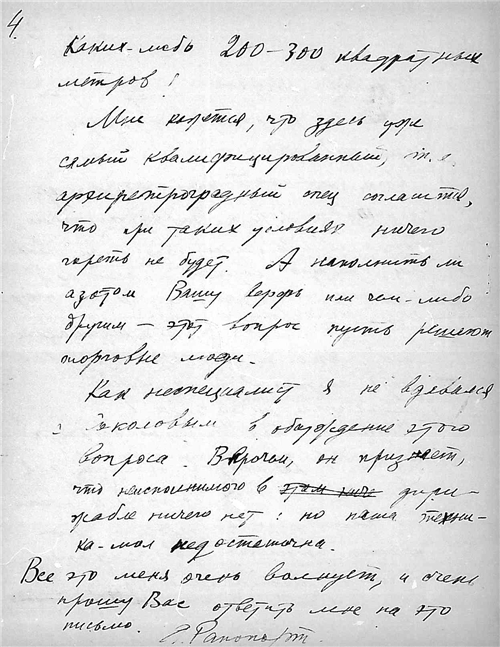 4.
Каких-либо 200–300 квадратных
метров!
Мне кажется, что здесь уже
самый квалифицированный,
архиретроградный спец согласится,
что при таких условиях ничего
гореть не будет. А наполнить ли
азотом Вашу верфь или чем-либо
другим – этот вопрос пусть решают
торговые люди.
Как неспециалист я не вдавался
с Соколовым в обсуждение этого
вопроса. Впрочем, он признает,
что неисполнимого в этом ниче дири-
жабле ничего нет: но наша техни-
ка-мол недостаточна.
Все это меня очень волнует, и очень
прошу Вас ответить мне на это
письмо.
Рапопорт.